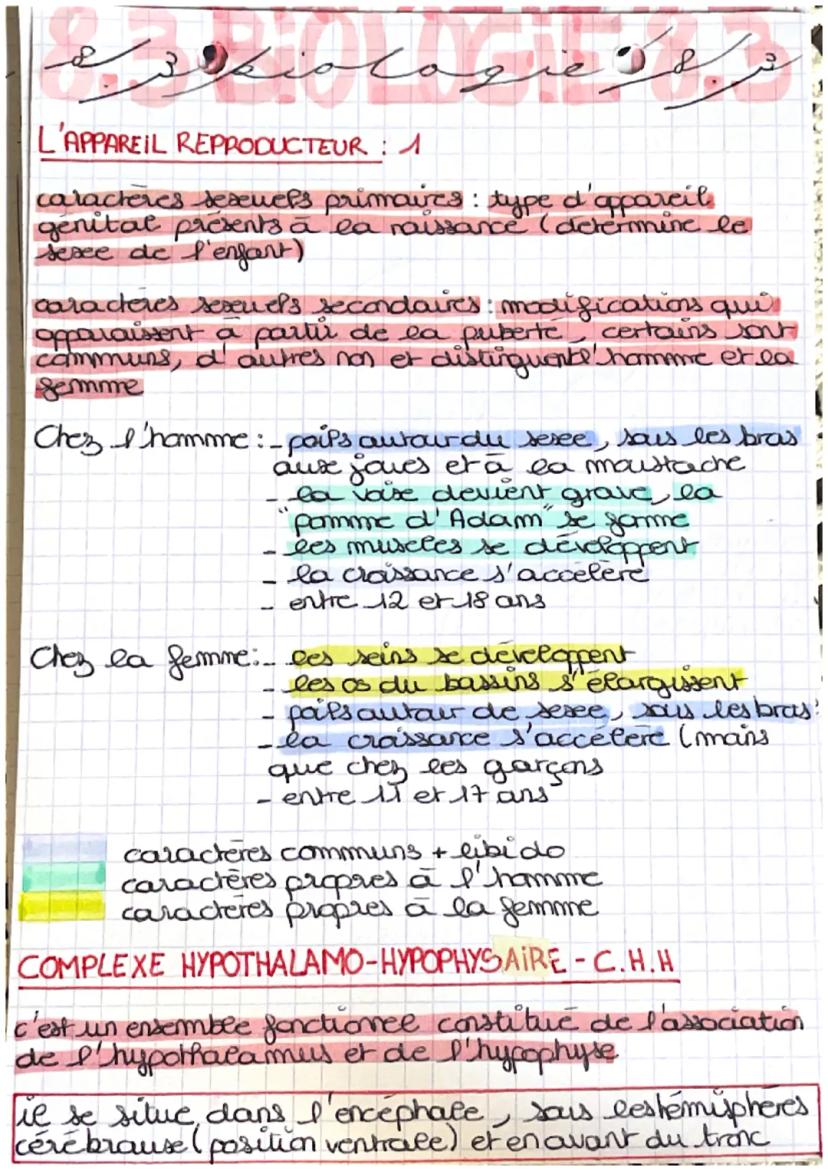 8.3 BIOLOGIE 8.3
8.3 biologie 8.3
L'APPAREIL REPRODUCTEUR : 1
caractères sexuels primaires : type d'appareil
génital présents à la naissance (détermine le
sexe de l'enfant)
caractères sexuels secondaires : modifications qui
apparaissent à partir de la puberté, certains sont
communs, d'autres non et distinguent l'homme et la
femme
Chez l'homme : - poils autour du sexe, sous les bras
aux joues et à la moustache
- la voix devient grave, la
"pomme d'Adam" se forme
- les muscles se développent
- la croissance s'accélère
- entre 12 et 18 ans
Chez la femme : - les seins se développent
- les os du bassins s'élargissent
- poils autour de sexe, sous les bras
- la croissance s'accélère (moins
que chez les garçons
- entre 11 et 17 ans
caractères communs + libido
caractères propres à l'homme
caractères propres à la femme
COMPLEXE HYPOTHALAMO-HYPOPHYSAIRE - C.H.H
c'est un ensemble fonctionel constitué de l'association
de l'hypothalamus et de l'hypophyse
il se situe dans l'encéphale, sous les hémisphères
cérébraux (position ventrale) et en avant du tronc